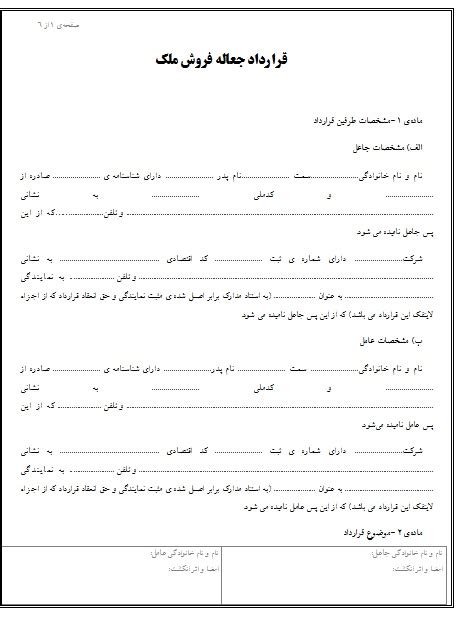 صفحه‌ی ۱ از ۶
قرارداد جعاله فروش ملک
ماده‌ی ۱-مشخصات طرفین قرارداد
الف) مشخصات جاعل
نام و نام خانوادگی.......................سمت ......................نام پدر ...................... دارای شناسنامه ی ...................... صادره از
...................... و کدملی ...................... به نشانی
............................................................................................ و تلفن......................که از این
پس جاعل نامیده می شود.
شرکت...................... دارای شماره ی ثبت ...................... کد اقتصادی ............................................ به نشانی
............................................................................................ و تلفن ...................... به نمایندگی
............................................ به عنوان .................. (به استناد مدارک برابر اصل شده ی مثبت نمایندگی و حق انعقاد قرارداد که از اجزاء
لاینفک این قرارداد می باشد) که از این پس جاعل نامیده می شود.
ب) مشخصات عامل
نام و نام خانوادگی...................... سمت ...................... نام پدر...................... دارای شناسنامه ی ...................... صادره از
...................... و کدملی ...................... به نشانی
............................................................................................ و تلفن ...................... که از این
پس عامل نامیده می‌شود.
شرکت...................... دارای شماره ی ثبت ...................... کد اقتصادی ............................................ به نشانی
............................................................................................ و تلفن ...................... به نمایندگی
............................................ به عنوان .................. (به استناد مدارک برابر اصل شده ی مثبت نمایندگی و حق انعقاد قرارداد که از اجزاء
لاینفک این قرارداد می باشد) که از این پس عامل نامیده می شود.
ماده‌ی ۲-موضوع قرارداد
نام و نام خانوادگی جاعل:
امضا و اثر انگشت:
نام و نام خانوادگی عامل:
امضا و اثر انگشت: